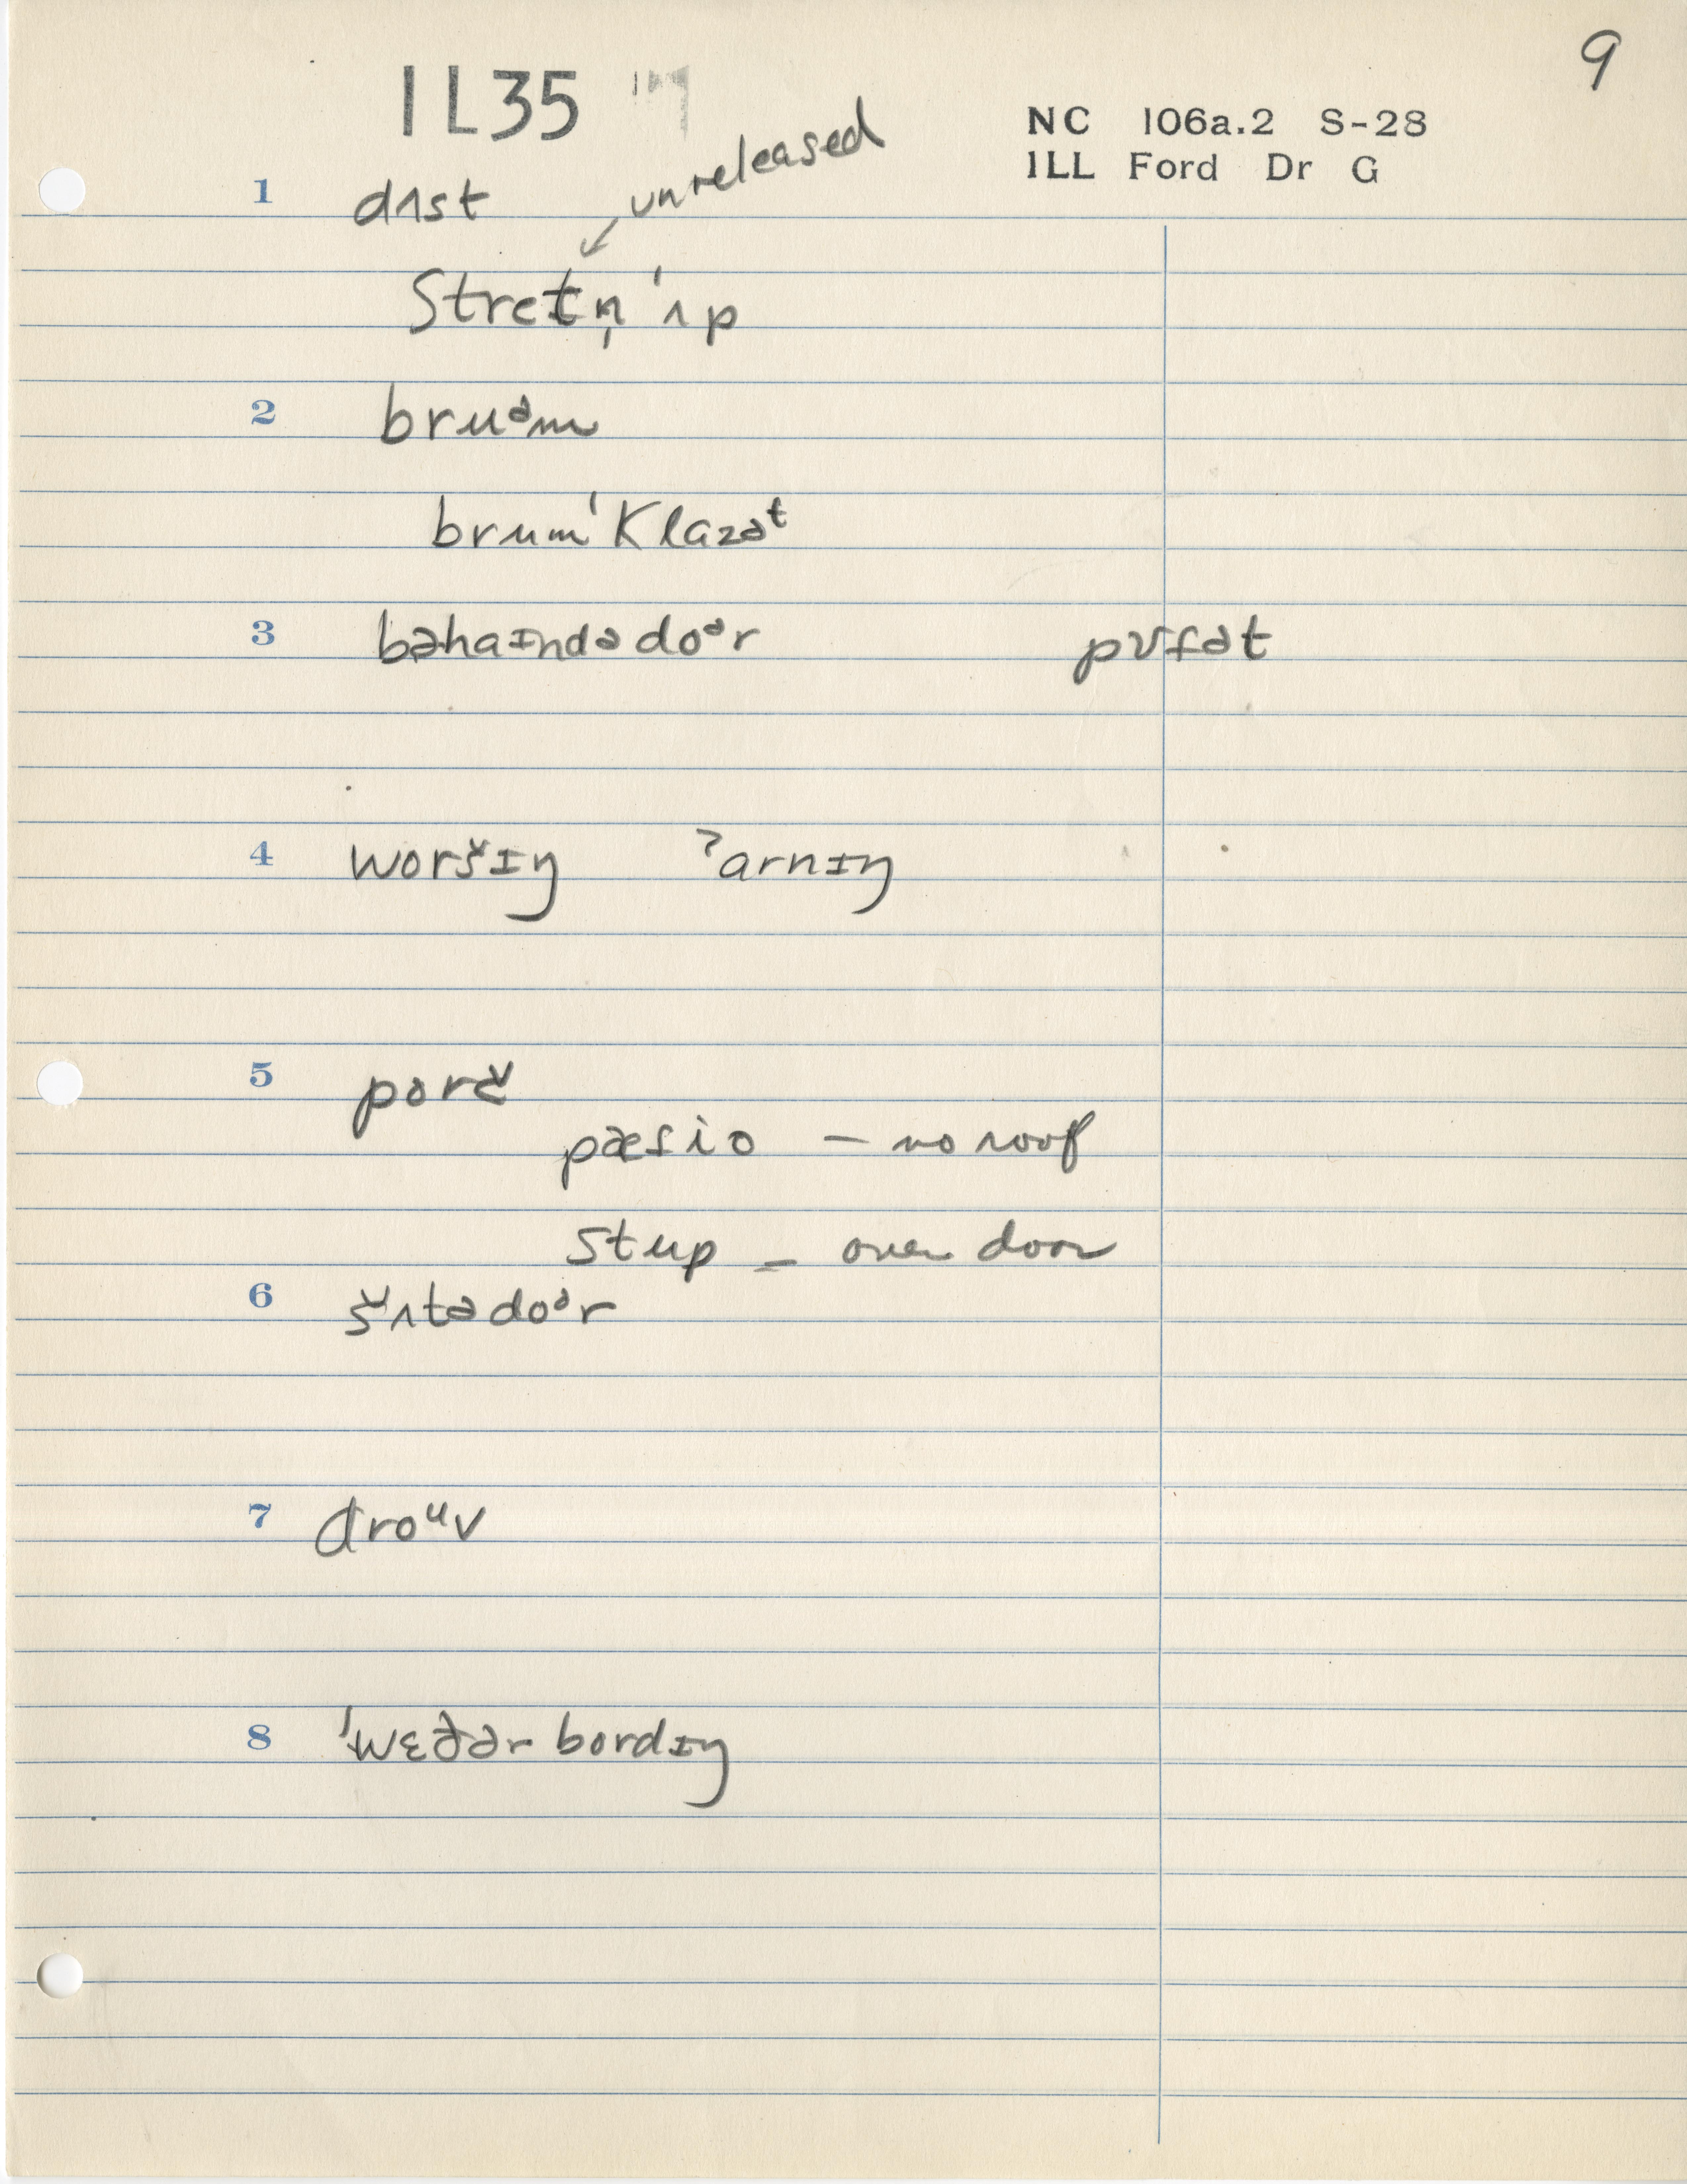 9
IL35
NC 106a.2 S-28
ILL Ford Dr G
unreleased
1 dʌst
stretn̩ˈʌp
2 bruᵊm
brumˈklazəᵗ
3 bəhaɪndədoᵊr pʊfət
4 woršɪŋ ˀarnɪŋ
5 porč
pæsio – no roof
stup – over door
6 šʌtədoᵊr
7 droᵘv
8 ˈwɛðər bordɪŋ